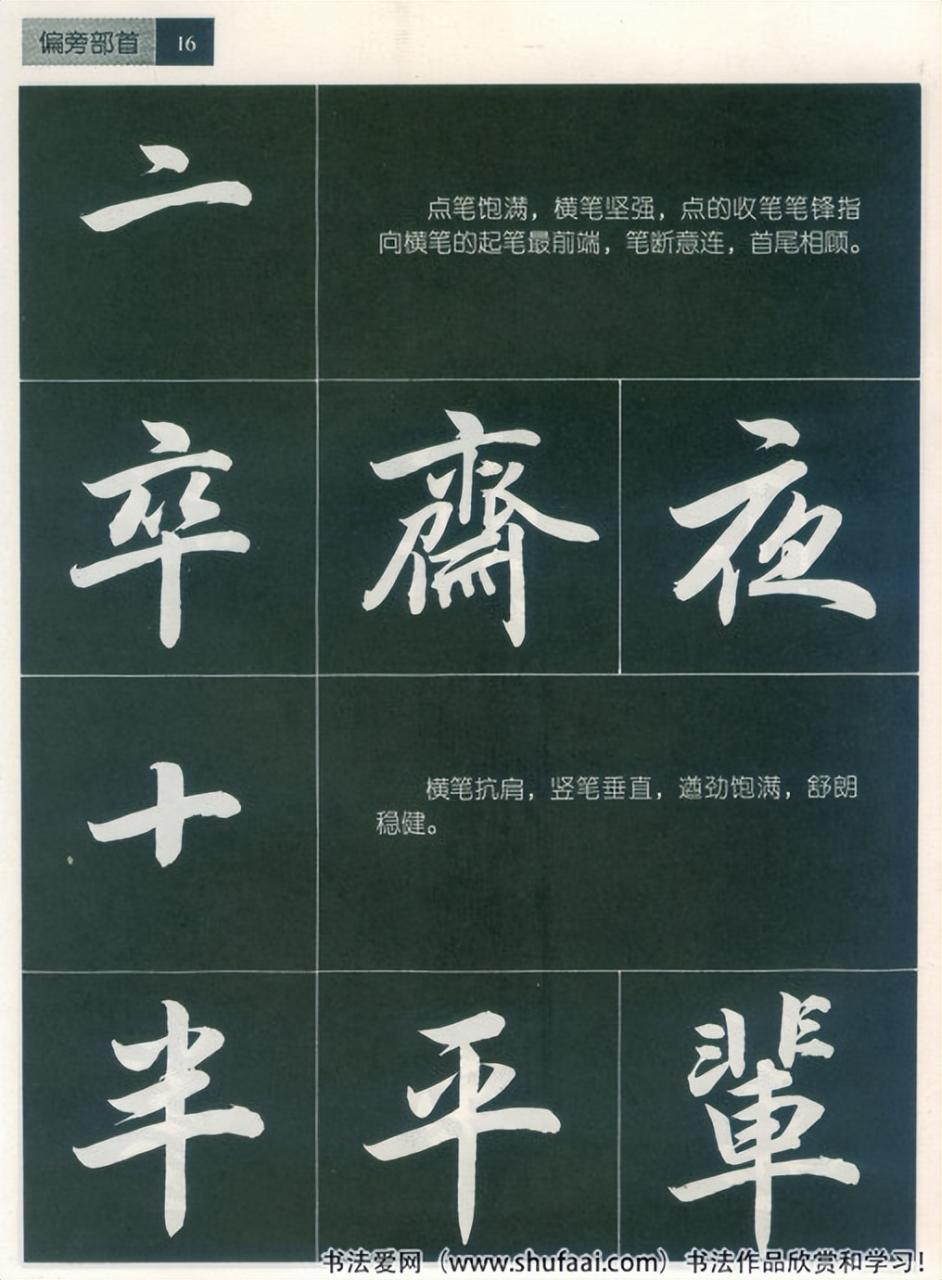 偏旁部首 16
亠
点笔饱满，横笔坚强，点的收笔笔锋指
向横笔的起笔最前端，笔断意连，首尾相顾。
卒 齋 夜
十
横笔抗肩，竖笔垂直，遒劲饱满，舒朗
稳健。
半 平 輩
书法爱网（www.shufaai.com）书法作品欣赏和学习！